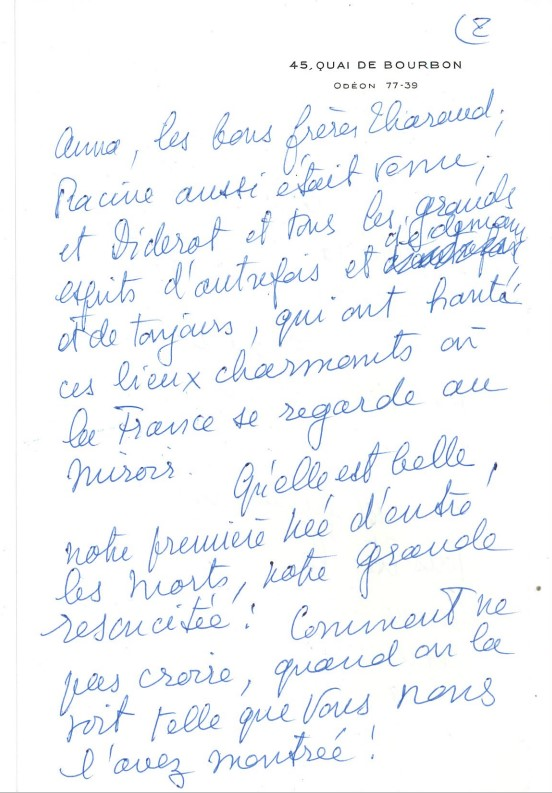 (2
45, QUAI DE BOURBON
ODÉON 77-39
Anna, les bons frères Tharaud;
Racine aussi était venu;
et Diderot et tous les grands
esprits d'autrefois et
et de toujours, qui ont hanté
ces lieux charmants où
la France se regarde au
miroir. Qu'elle est belle,
notre première née d'entre
les morts, notre grande
resuscitée! Comment ne
pas croire, quand on la
voit telle que vous nous
l'avez montrée!